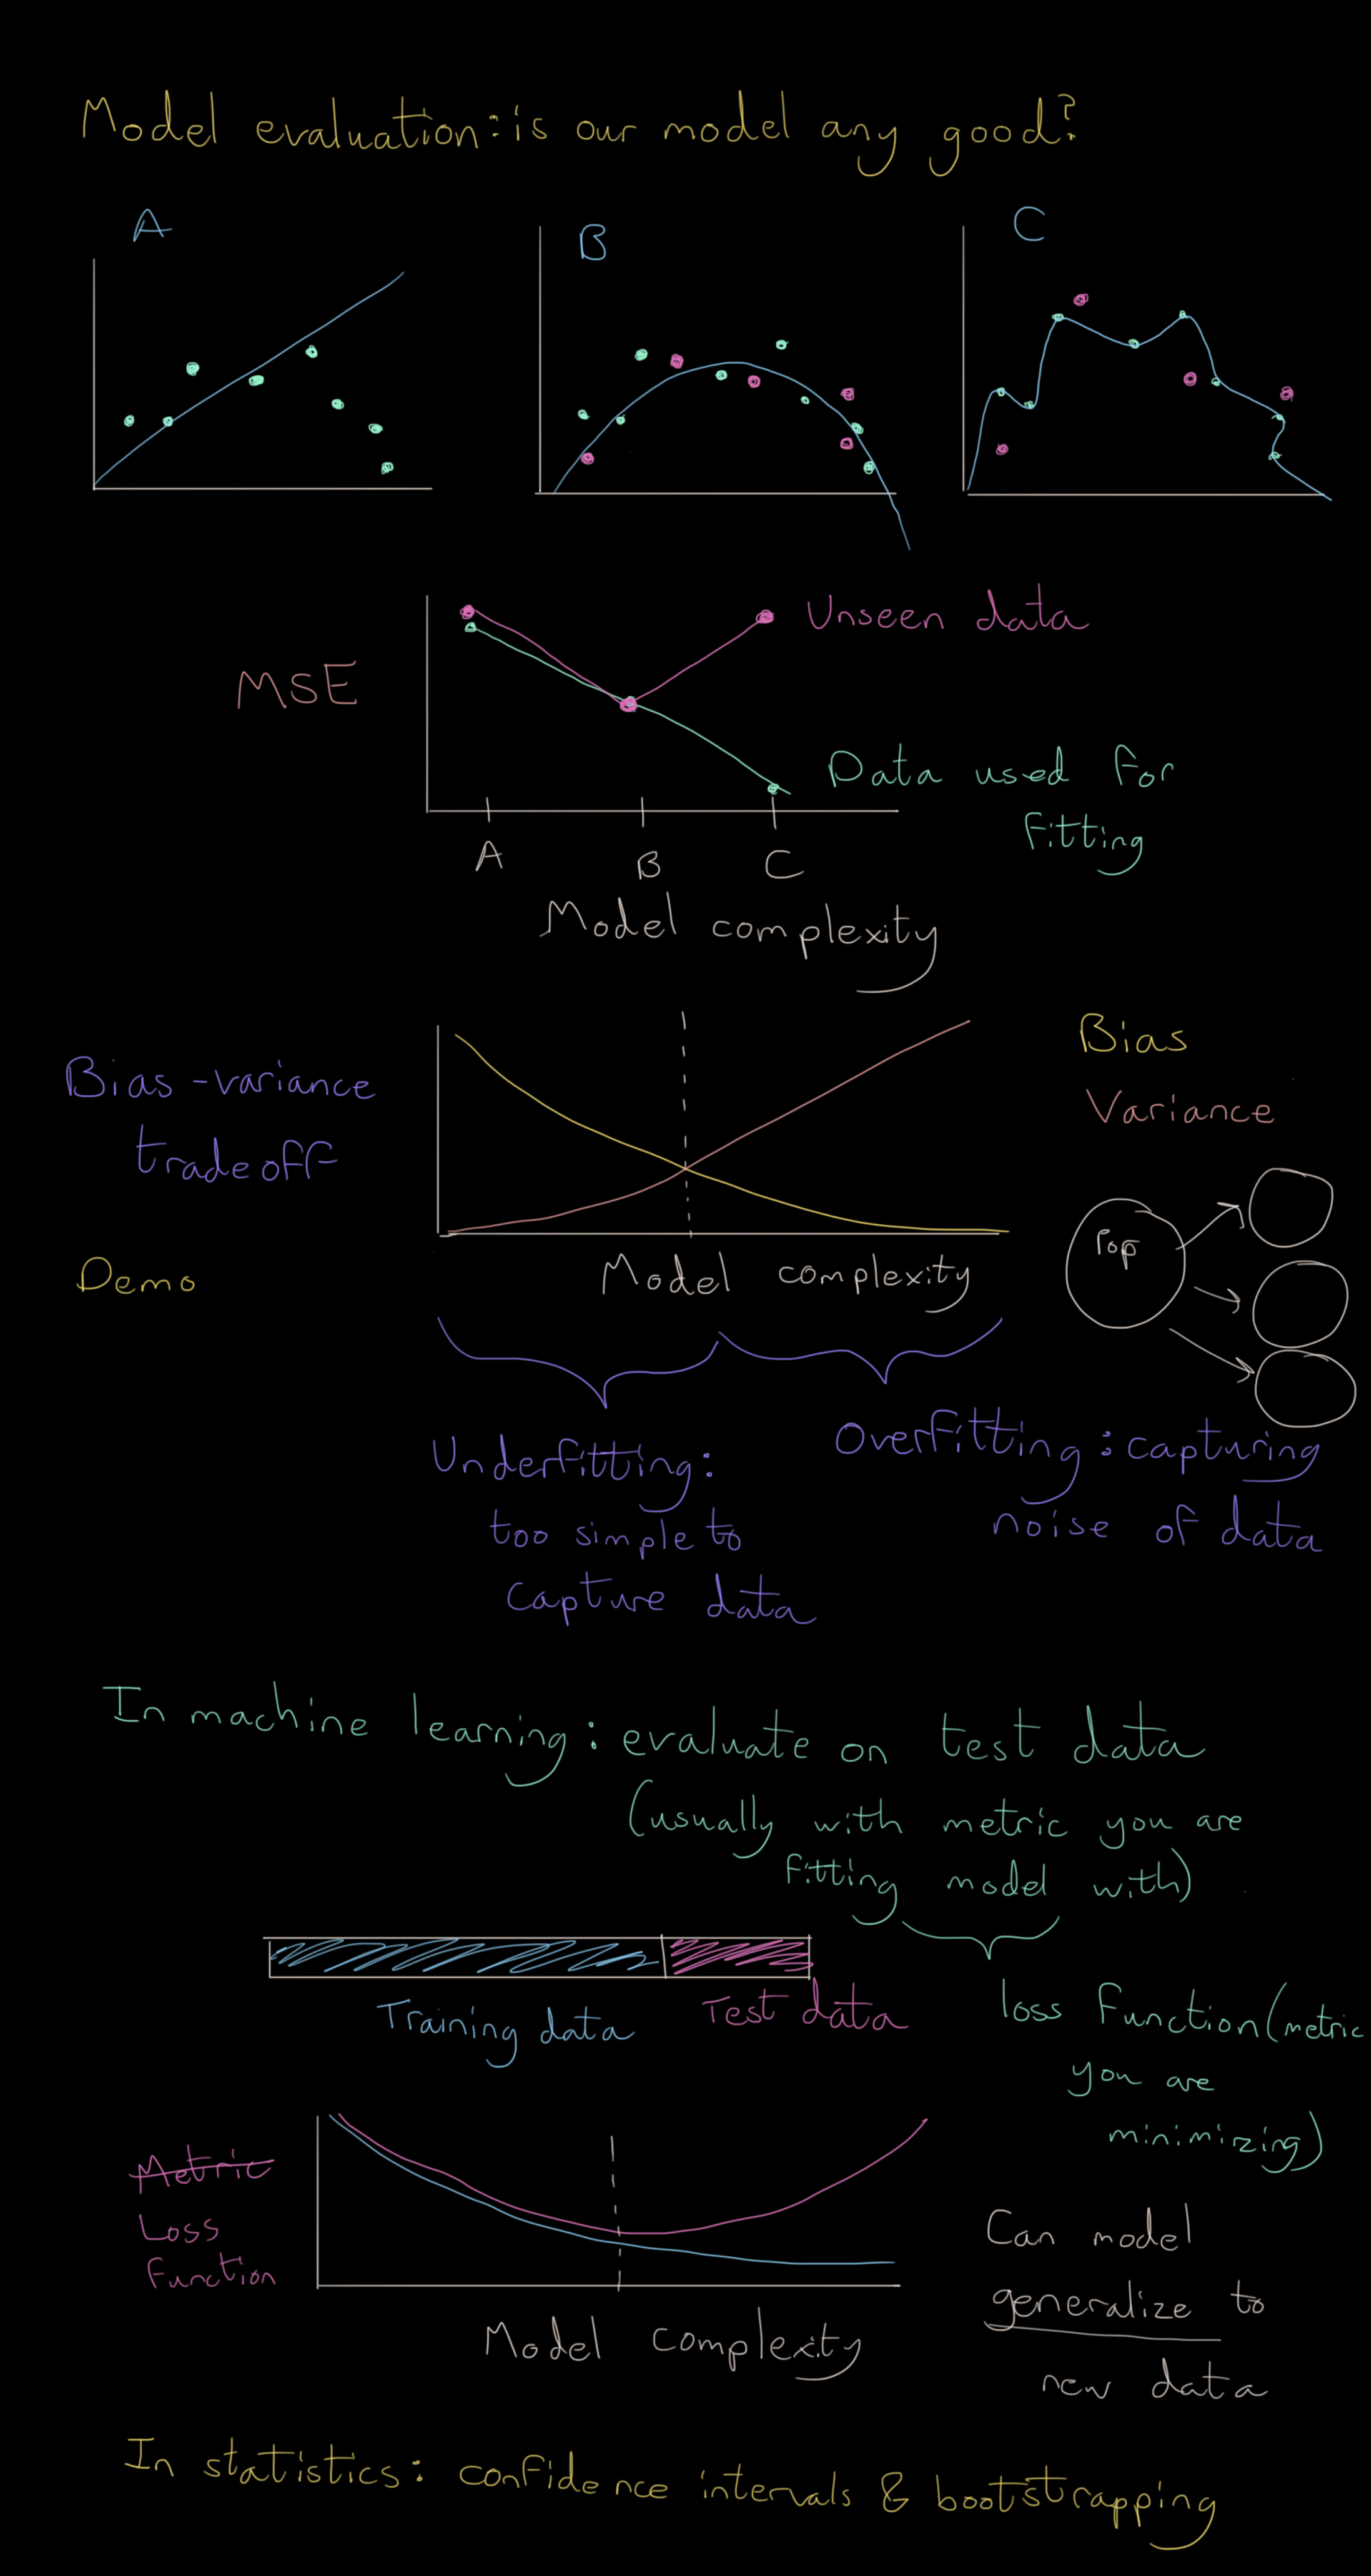 Model evaluation: is our model any good?
A
B
C
MSE
Unseen data
Data used for
fitting
A B C
Model complexity
Bias-variance
tradeoff
Bias
Variance
Pop
Demo
Model complexity
Underfitting:
too simple to
capture data
Overfitting: capturing
noise of data
In machine learning: evaluate on test data
(usually with metric you are
fitting model with)
Training data
Test data
loss function (metric
you are
minimizing)
Metric
Loss
Function
Model complexity
Can model
generalize to
new data
In statistics: confidence intervals & bootstrapping